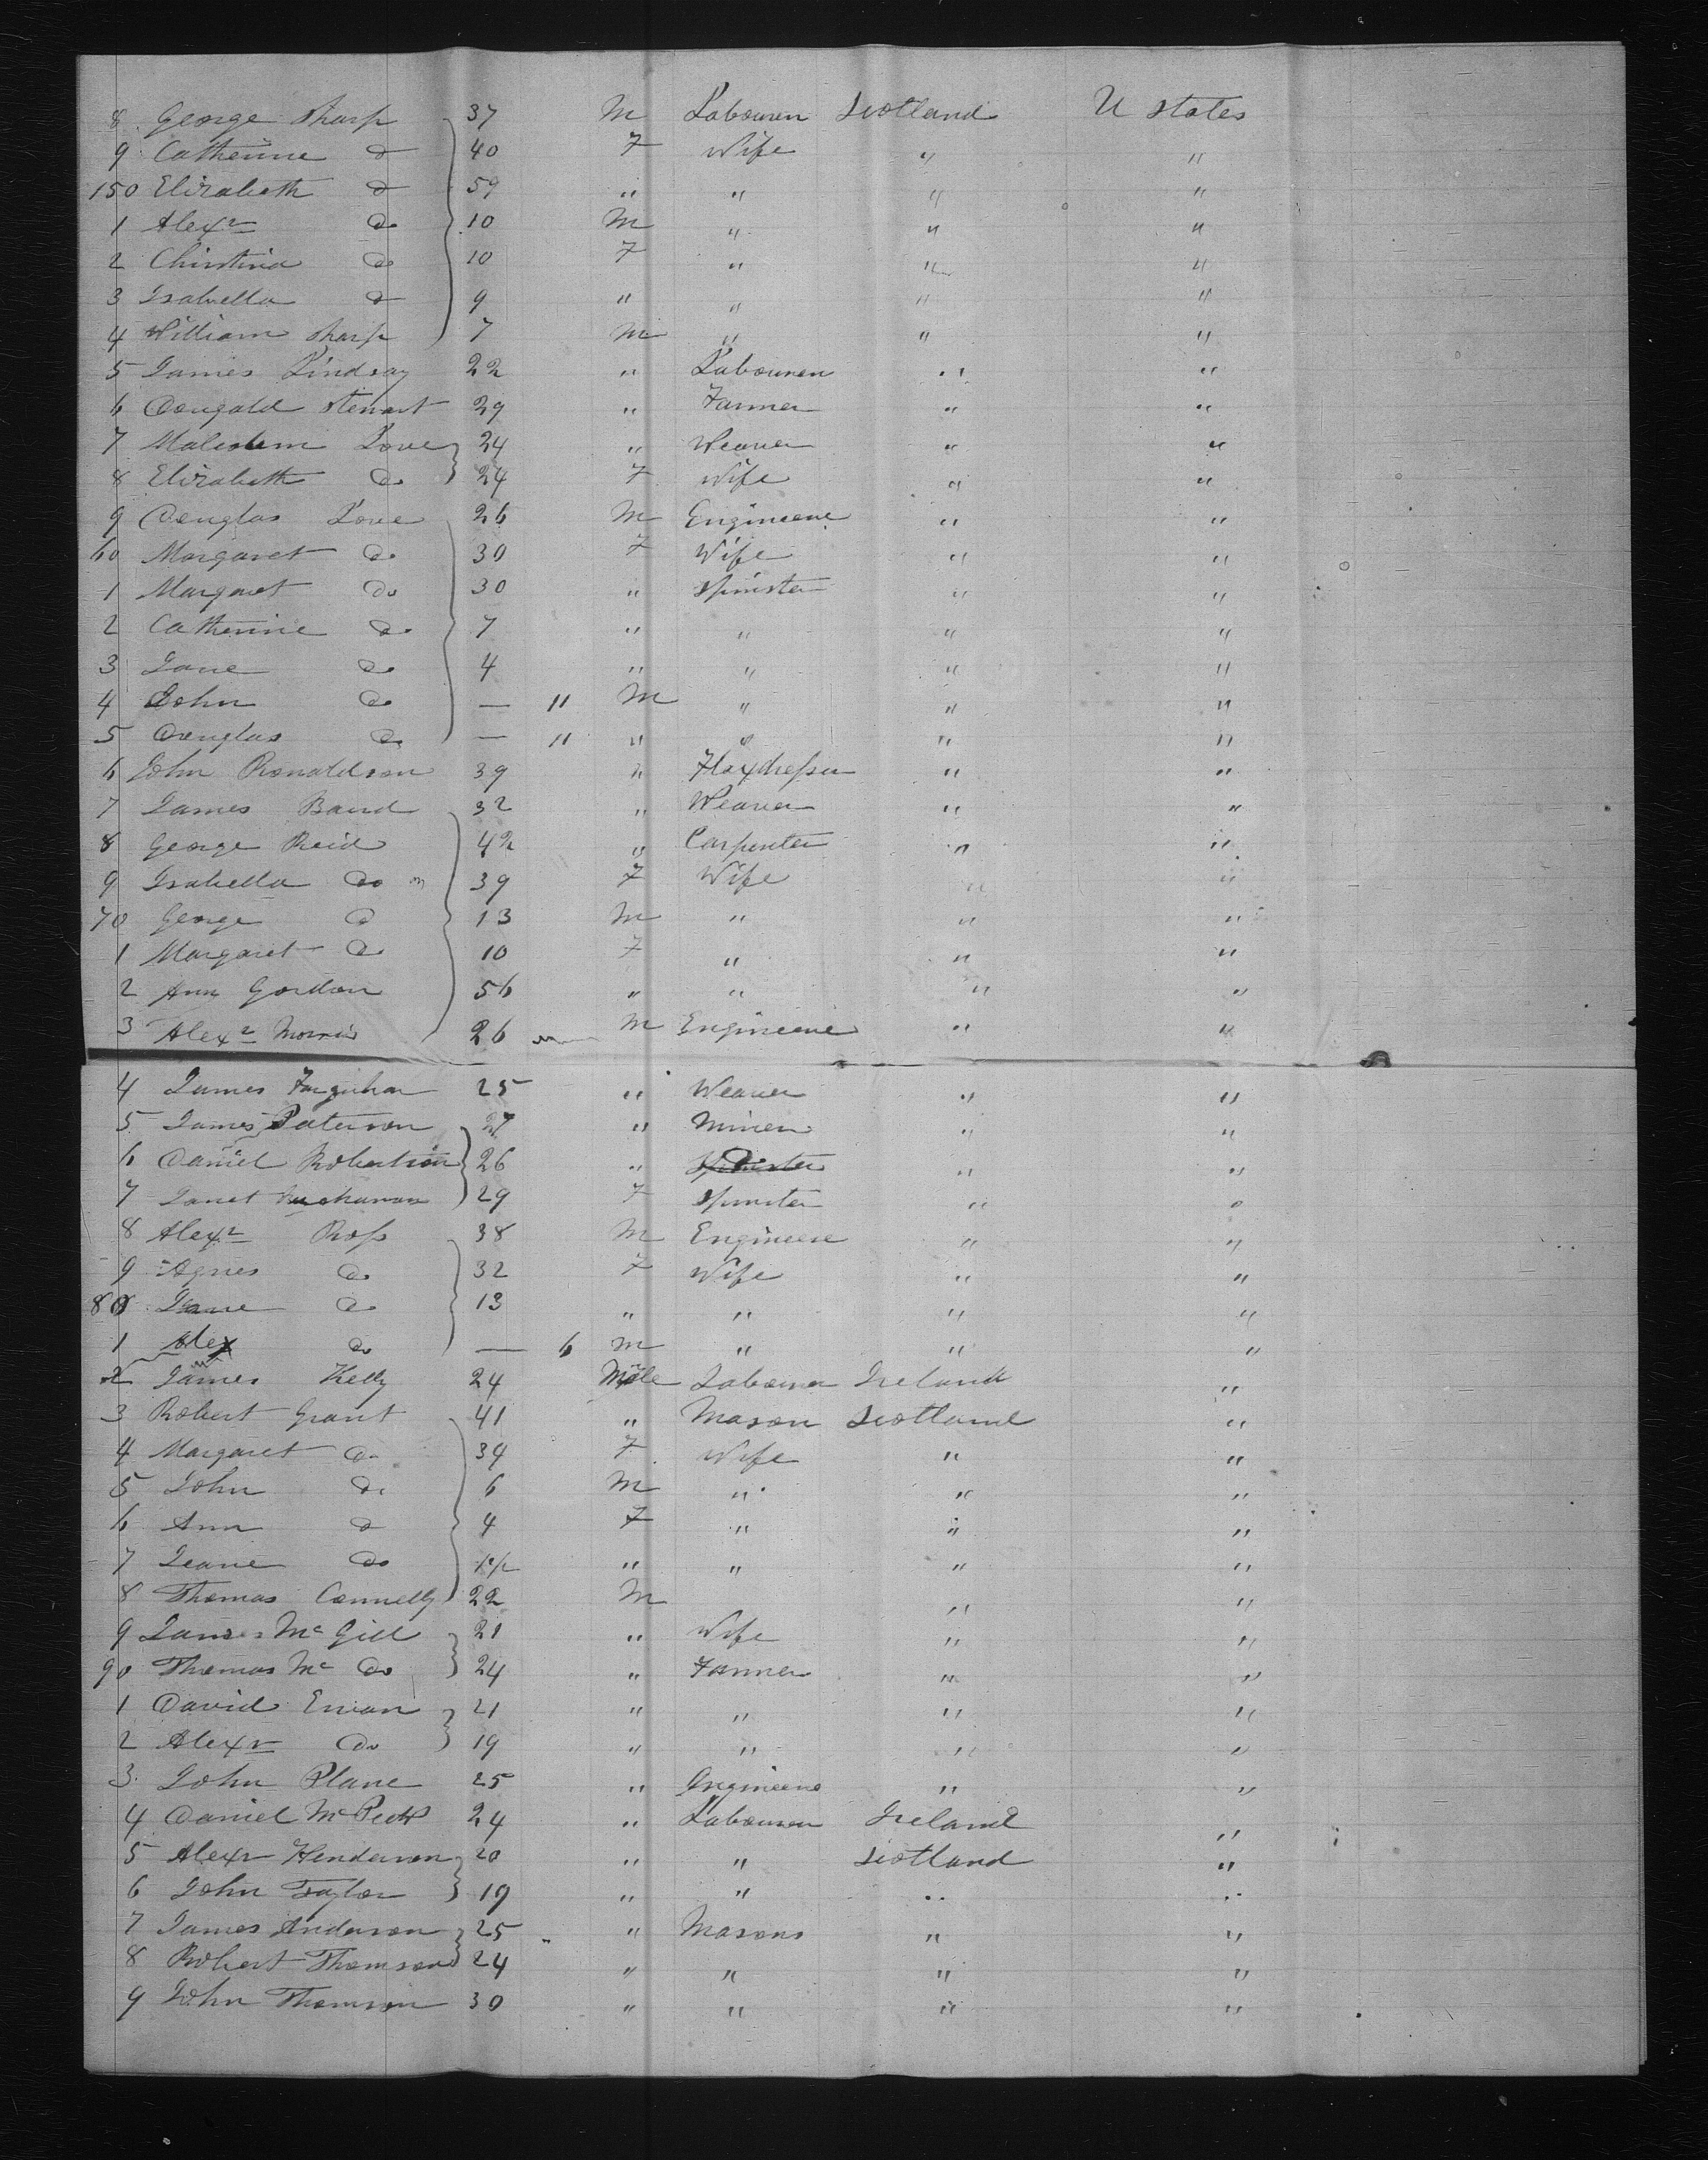 8 George Sharp 37 M Labourer Scotland U States
9 Catherine do 40 F Wife " "
150 Elizabeth do 59 " " " "
1 Alexr do 10 M " " "
2 Christina do 10 F " " "
3 Isabella do 9 " " " "
4 William Sharp 7 M " " "
5 James Lindsay 22 " Labourer " "
6 Dougald Stewart 29 " Farmer " "
7 Malcolm Love 24 " Weaver " "
8 Elizabeth do 24 F Wife " "
9 Douglas Love 26 M Engineere " "
60 Margaret do 30 F Wife " "
1 Margaret do 30 " Spinster " "
2 Catherine do 7 " " " "
3 Jane do 4 " " " "
4 John do — 11 M " " "
5 Douglas do — 11 " " " "
6 John Ronaldson 39 " Flaxdresser " "
7 James Baird 32 " Weaver " "
8 George Reid 42 " Carpenter " "
9 Isabella do 39 F Wife " "
70 George do 13 M " " "
1 Margaret do 10 F " " "
2 Ann Gordon 56 " " " "
3 Alexr Morris 26 M Engineere " "
4 James Farquhar 25 " Weaver " "
5 James Paterson 27 " Miner " "
6 Daniel Robertson 26 " Spinster " "
7 Janet Buchanan 29 F Spinster " "
8 Alexr Ross 38 M Engineere " "
9 Agnes do 32 F Wife " "
80 Jane do 13 " " " "
1 Alex do — 6 M " " "
2 James Kelly 24 Male Labourer Ireland "
3 Robert Grant 41 " Mason Scotland "
4 Margaret do 34 F Wife " "
5 John do 6 M " " "
6 Ann do 4 F " " "
7 Jeane do " " " "
8 Thomas Connelly 22 M " "
9 James McGill 21 " Wife " "
90 Thomas Mc do 24 " Farmer " "
1 David Ewan 21 " " " "
2 Alexr do 19 " " " "
3 John Plane 25 " Engineere " "
4 Daniel 24 " Labourer Ireland "
5 Alexr Henderson 20 " " Scotland "
6 John Taylor 19 " " " "
7 James Anderson 25 " Masons " "
8 Robert Thomson 24 " " " "
9 John Thomson 30 " " " "